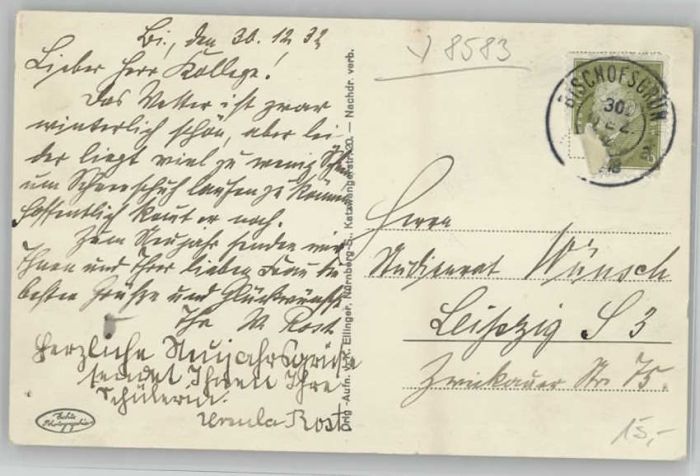 Bi., den 30.12.32
Lieber Herr Kollege!
Das Wetter ist zwar
winterlich schön, aber lei-
der liegt viel zu wenig Schnee
um Schneeschuh laufen zu können
hoffentlich komt er noch.
Zum Neujahr senden wir
Ihnen und Ihrer lieben Frau die
besten Grüße und Glückwünsche
Ihr W. Rost
Herzliche Neujahrsgrüße
sendet Ihnen Ihre
Schülerin
Ursula Rost
Echte Photographie
Orig.-Aufn. v. K. Ellinger, Nürnberg-S., Katzwangerstr. 20. — Nachdr. verb.
8583
BISCHOFSGRÜN
30.
DEZ.
Herrn
Studienrat Wünsch
Leipzig S 3
Zwickauer Str. 75.
15,-